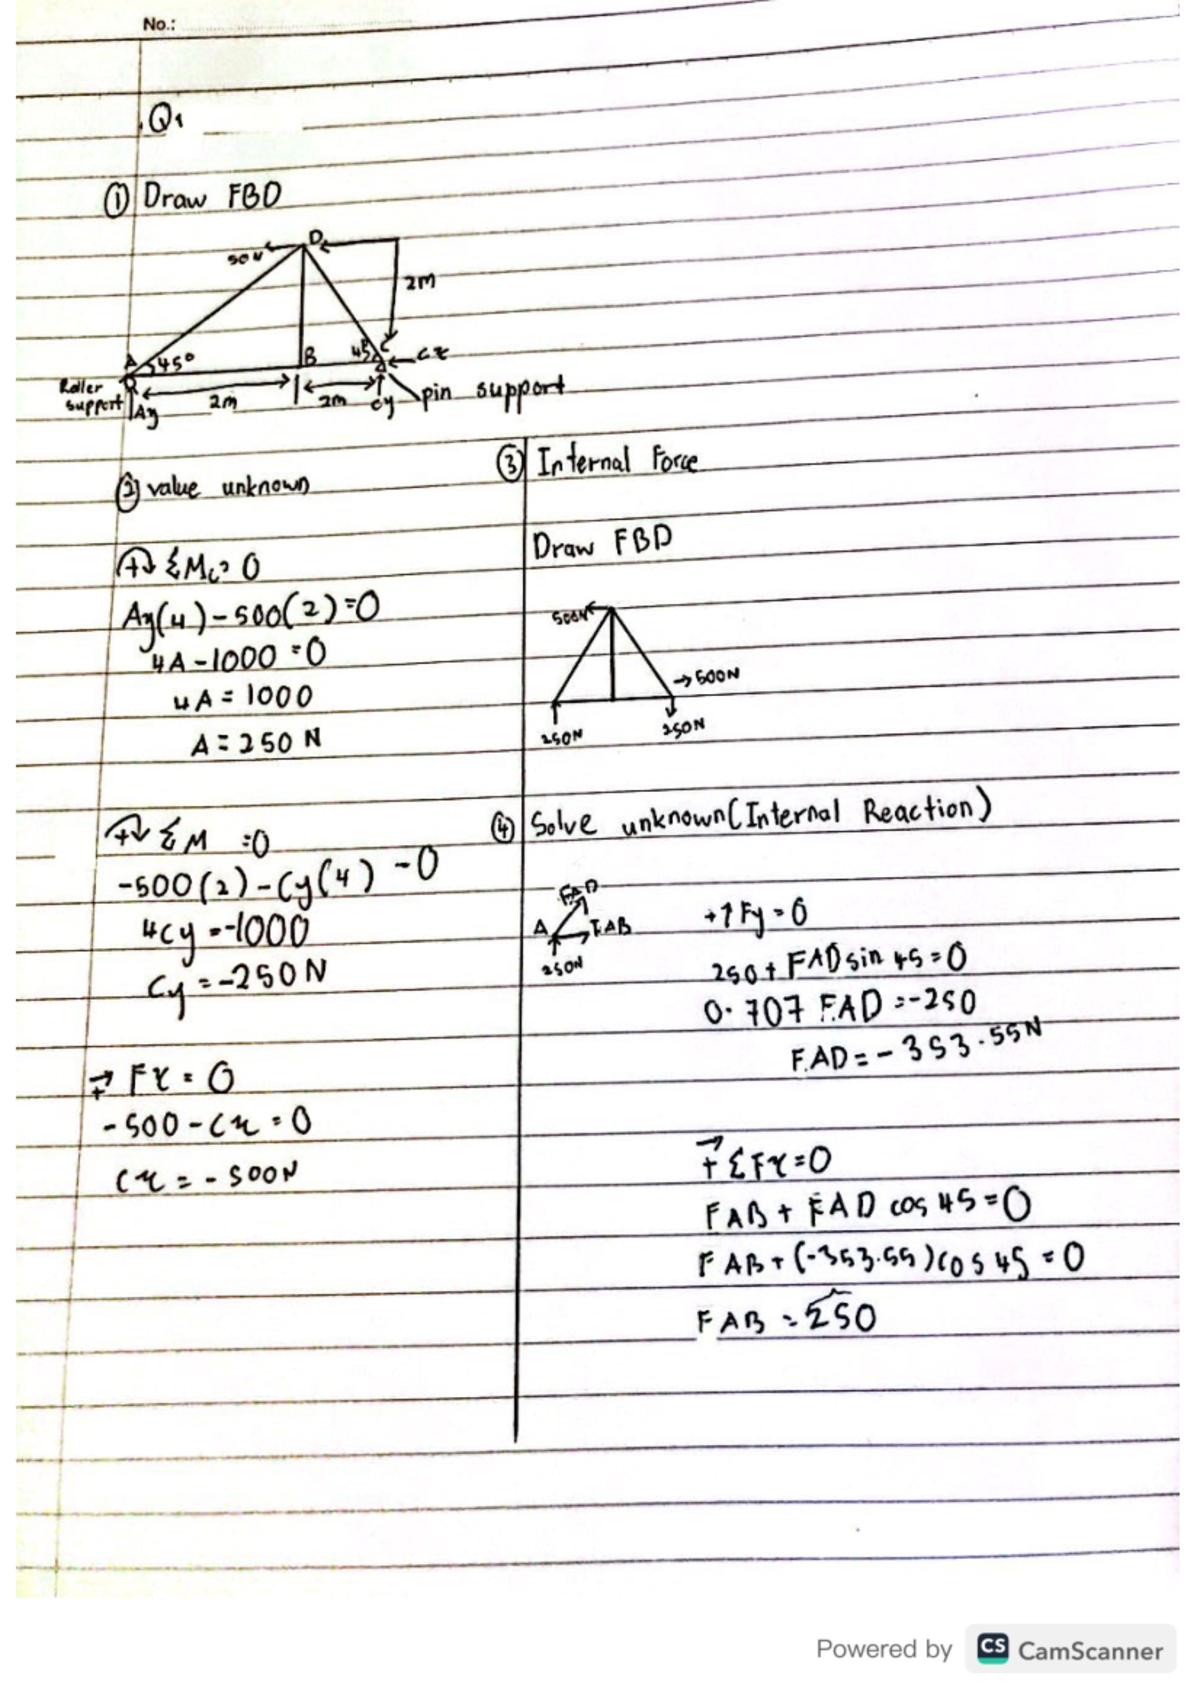 No.:
Q1
① Draw FBD
D
50N
2m
A
45°
B
45°
C
Cx
Roller
support
Ay
2m
2m
Cy
pin support
② value unknown
↷+ ΣMc = 0
Ay(4) - 500(2) = 0
4A - 1000 = 0
4A = 1000
A = 250 N
↷+ ΣM = 0
-500(2) - Cy(4) - 0
4Cy = -1000
Cy = -250N
→+ Fx = 0
-500 - Cx = 0
Cx = -500N
③ Internal Force
Draw FBD
500N
→500N
250N
250N
④ Solve unknown (Internal Reaction)
FAD
A
FAB
250N
+↑Fy = 0
250 + FAD sin 45 = 0
0.707 FAD = -250
FAD = -353.55N
→+ ΣFx = 0
FAB + FAD cos 45 = 0
FAB + (-353.55) cos 45 = 0
FAB = 250
Powered by CS CamScanner